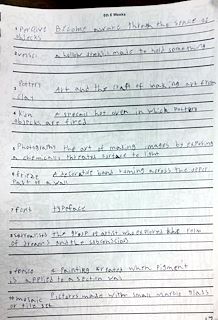 6th 6 Weeks
perceive Become aware through the sense of
objects
vessel a hollow utensil made to hold something
Pottery Art and the craft of making art from
clay
Kiln A special hot oven in which Pottery
objects are fired
Photography the art of making images by exposing
a chemically treated surface to light
frieze A decorative band running across the upper
Part of a wall
7 font typeface
8 surrealists The group of artist who explored the realm
of dreams and the subconscious
9 fresco A Painting created when Pigment
is applied to a section wall
mosaic Pictures made with small marble glass
or tile set